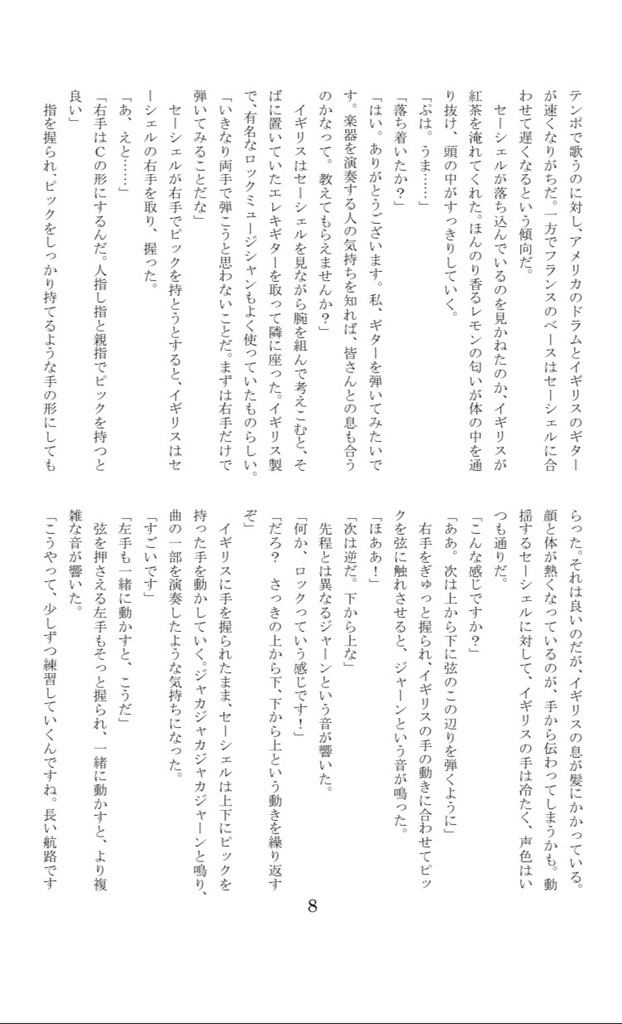 テンポで歌うのに対し、アメリカのドラムとイギリスのギター
が速くなりがちだ。一方でフランスのベースはセーシェルに合
わせて遅くなるという傾向だ。
　セーシェルが落ち込んでいるのを見かねたのか、イギリスが
紅茶を淹れてくれた。ほんのり香るレモンの匂いが体の中を通
り抜け、頭の中がすっきりしていく。
「ぷは。うま……」
「落ち着いたか？」
「はい。ありがとうございます。私、ギターを弾いてみたいで
す。楽器を演奏する人の気持ちを知れば、皆さんとの息も合う
のかなって。教えてもらえませんか？」
　イギリスはセーシェルを見ながら腕を組んで考えこむと、そ
ばに置いていたエレキギターを取って隣に座った。イギリス製
で、有名なロックミュージシャンもよく使っていたものらしい。
「いきなり両手で弾こうと思わないことだ。まずは右手だけで
弾いてみることだな」
　セーシェルが右手でピックを持とうとすると、イギリスはセ
ーシェルの右手を取り、握った。
「あ、えと……」
「右手はＣの形にするんだ。人指し指と親指でピックを持つと
良い」
　指を握られ、ピックをしっかり持てるような手の形にしても
らった。それは良いのだが、イギリスの息が髪にかかっている。
顔と体が熱くなっているのが、手から伝わってしまうかも。動
揺するセーシェルに対して、イギリスの手は冷たく、声色はい
つも通りだ。
「こんな感じですか？」
「ああ。次は上から下に弦のこの辺りを弾くように」
　右手をぎゅっと握られ、イギリスの手の動きに合わせてピッ
クを弦に触れさせると、ジャーンという音が鳴った。
「ほああ！」
「次は逆だ。下から上な」
　先程とは異なるジャーンという音が響いた。
「何か、ロックっていう感じです！」
「だろ？　さっきの上から下、下から上という動きを繰り返す
ぞ」
　イギリスに手を握られたまま、セーシェルは上下にピックを
持った手を動かしていく。ジャカジャカジャカジャーンと鳴り、
曲の一部を演奏したような気持ちになった。
「すごいです」
「左手も一緒に動かすと、こうだ」
　弦を押さえる左手もそっと握られ、一緒に動かすと、より複
雑な音が響いた。
「こうやって、少しずつ練習していくんですね。長い航路です
8